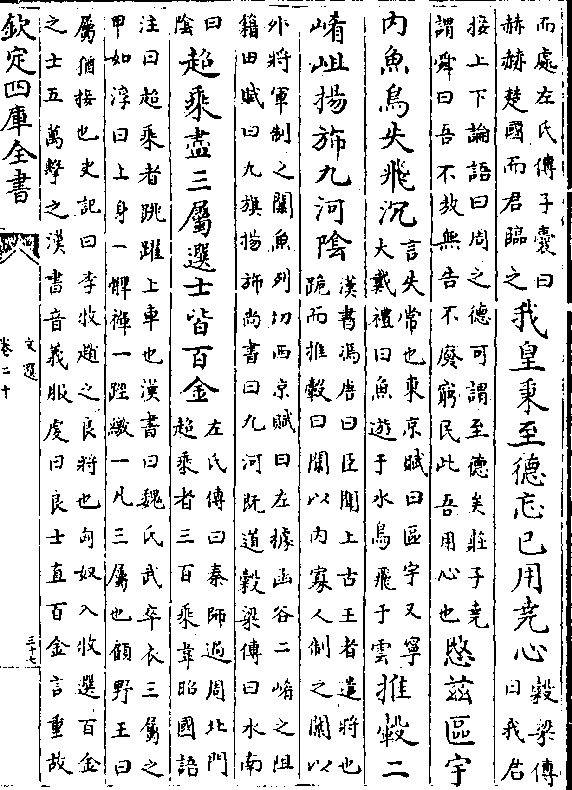 而處左氏傳子囊曰
赫赫楚國而君臨之
我皇秉至德忘已用堯心
穀梁傳
曰我君
接上下論語曰周之德可謂至德矣莊子堯
謂舜曰吾不敖無告不廢窮民此吾用心也
愍茲區宇
内魚鳥失飛沉
言失常也東京賦曰區宇乂寧
大戴禮曰魚遊于水鳥飛于雲
推轂二
崤岨揚斾九河陰
漢書馮唐曰臣聞上古王者遣將也
跪而推轂曰闑以内寡人制之闑以
外將軍制之闑魚列切西京賦曰左據函谷二崤之阻
籍田賦曰九旗揚斾尚書曰九河既道穀梁傳曰水南
曰
陰
超乘盡三屬選士皆百金
左氏傳曰秦師過周北門
超乘者三百乘韋昭國語
注曰超乘者跳躍上車也漢書曰魏氏武卒衣三屬之
甲如淳曰上身一髀褌一踁繳一凡三屬也顧野王曰
屬猶接也史記曰李牧趙之良將也匈奴入收選百金
之士五萬擊之漢書音義服虔曰良士直百金言重故
欽定四庫全書
文選
卷二十
三十七